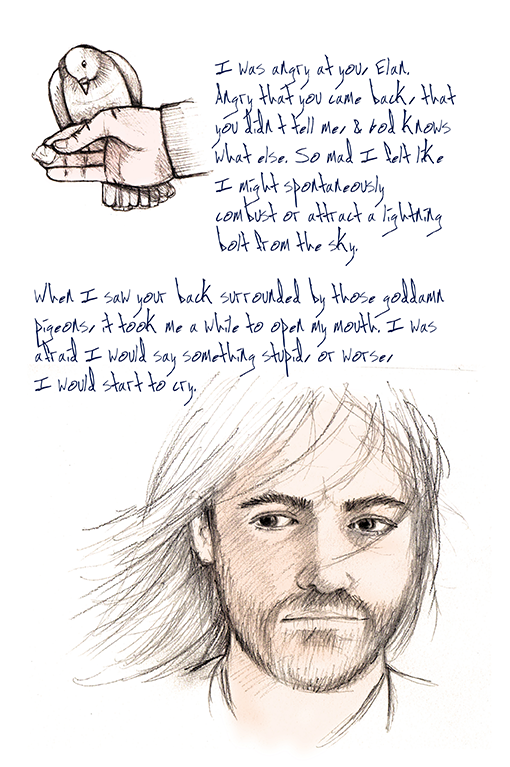 I was angry at you, Elan.
Angry that you came back, that
you didn't tell me, & God knows
what else. So mad I felt like
I might spontaneously
combust or attract a lightning
bolt from the sky.
When I saw your back surrounded by those goddamn
pigeons, it took me a while to open my mouth. I was
afraid I would say something stupid, or worse,
I would start to cry.